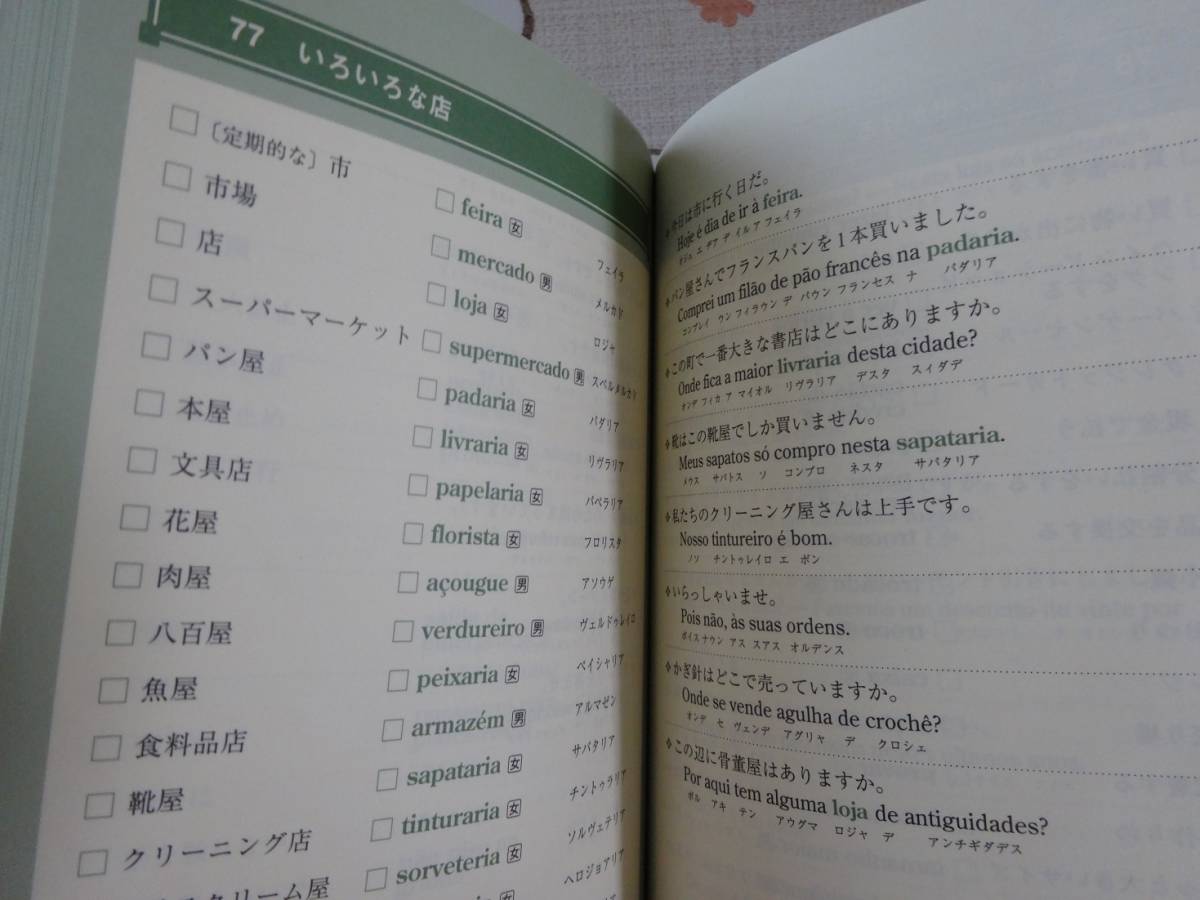 77 いろいろな店
□〔定期的な〕市
□ 市場
□ 店
□ スーパーマーケット
□ パン屋
□ 本屋
□ 文具店
□ 花屋
□ 肉屋
□ 八百屋
□ 魚屋
□ 食料品店
□ 靴屋
□ クリーニング店
スクリーム屋
□ feira 女 フェイラ
□ mercado 男 メルカド
□ loja 女 ロジャ
□ supermercado 男 スペルメルカド
□ padaria 女 パダリア
□ livraria 女 リヴラリア
□ papelaria 女 パペラリア
□ florista 女 フロリスタ
□ açougue 男 アソウゲ
□ verdureiro 男 ヴェルドゥレイロ
□ peixaria 女 ペイシャリア
□ armazém 男 アルマゼン
□ sapataria 女 サパタリア
□ tinturaria 女 チントゥラリア
□ sorveteria 女 ソルヴェテリア
女 ヘロジョアリア
❖今日は市に行く日だ。
Hoje é dia de ir à feira.
オジェ エ ヂア デ イル ア フェイラ
❖パン屋さんでフランスパンを1本買いました。
Comprei um filão de pão francês na padaria.
コンプレイ ウン フィラウン デ パウン フランセス ナ パダリア
❖この町で一番大きな書店はどこにありますか。
Onde fica a maior livraria desta cidade?
オンデ フィカ ア マイオル リヴラリア デスタ スィダデ
❖靴はこの靴屋でしか買いません。
Meus sapatos só compro nesta sapataria.
メウス サパトス ソ コンプロ ネスタ サパタリア
❖私たちのクリーニング屋さんは上手です。
Nosso tintureiro é bom.
ノソ チントゥレイロ エ ボン
❖いらっしゃいませ。
Pois não, às suas ordens.
ポイス ナウン アス スアス オルデンス
❖かぎ針はどこで売っていますか。
Onde se vende agulha de crochê?
オンデ セ ヴェンデ アグリャ デ クロシェ
❖この辺に骨董屋はありますか。
Por aqui tem alguma loja de antiguidades?
ポル アキ テン アウグマ ロジャ デ アンチギダデス